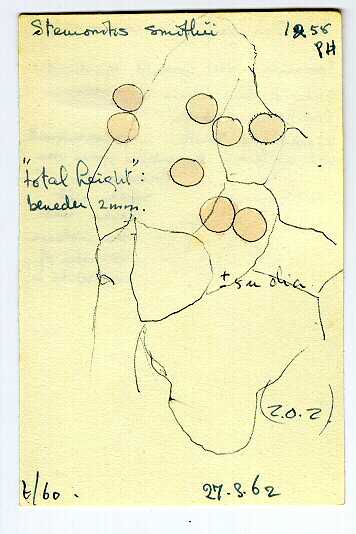 Stemonitis smithii 1258
PH
"total height":
beneden 2 mm.
± 5 u dia.
(Z.O.Z)
t/60.
27.3.62